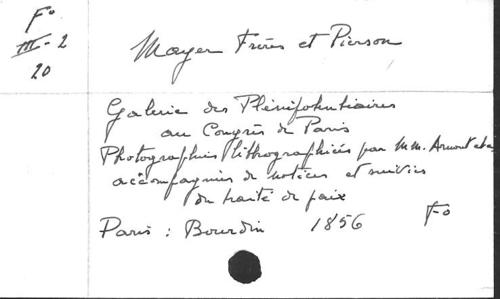 F°
III - 2
20
Mayer Frères et Pierson
Galerie des Plénipotentiaires
au Congrès de Paris
Photographies lithographiées par M.M. Arnout
accompagnées de notices et suivies
du traité de paix
Paris : Bourdin 1856 F°